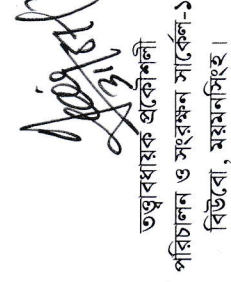 তত্ত্বাবধায়ক প্রকৌশলী
পরিচালন ও সংরক্ষন সার্কেল-১
বিউবো, ময়মনসিংহ।